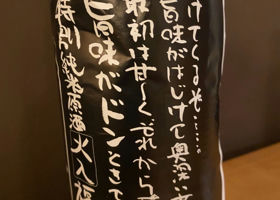 けてくるぞ……
旨味がはじけて奥深い
最初は甘〜くだれから
旨味がドンときて
特別純米原酒火入